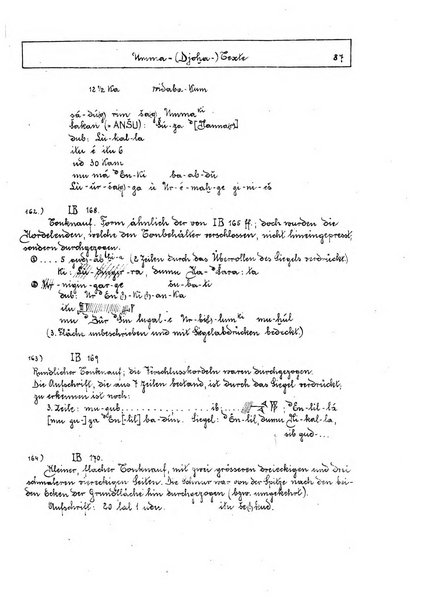 Umma-(Djoḫa-)Texte 87
12 1/2 Ka nidaba-kum
sá-dúg rim šag Umma ki
šakan (=ANŠU): Lù-ga [Hannas]
dub: Lu-kal-la
itu é itu 6
ud 30 Kam
mu má ᵈEn-Ki ba-ab-dŭ
162.) IB 168.
Tonknauf. Form ähnlich der von IB 165 ff.; doch wurden die
Kordelenden, welche den Tonbehälter verschlossen, nicht hineingepresst,
sondern durchgezogen.
(2 Zeilen durch das Überrollen des Siegels verdrückt)
dumu
šu-ba-ti
dub:
itu
mu
(3. Fläche unbeschrieben und mit Siegelabdrücken bedeckt)
163) IB 169
Rundlicher Tonknauf; die Verschlusskordeln waren durchgezogen.
Die Aufschrift, die aus 7 Zeilen bestand, ist durch das Siegel verdrückt,
zu erkennen ist noch:
3. Zeile: mu-gub............ib ᵈEn-lil-lá
[mu gu-]za ᵈEn[-lil] ba-dím. Siegel: ᵈEn-lil, dumu
sib gud...
164) IB 170.
Kleiner, flacher Tonknauf, mit zwei grösseren dreieckigen und drei
schmaleren viereckigen Seiten. Die Schnur war von der Spitze nach den bei-
den Ecken der Grundfläche hin durchgezogen (bzw. umgekehrt).
Aufschrift: 20 lal 1 udu itu šeškud.